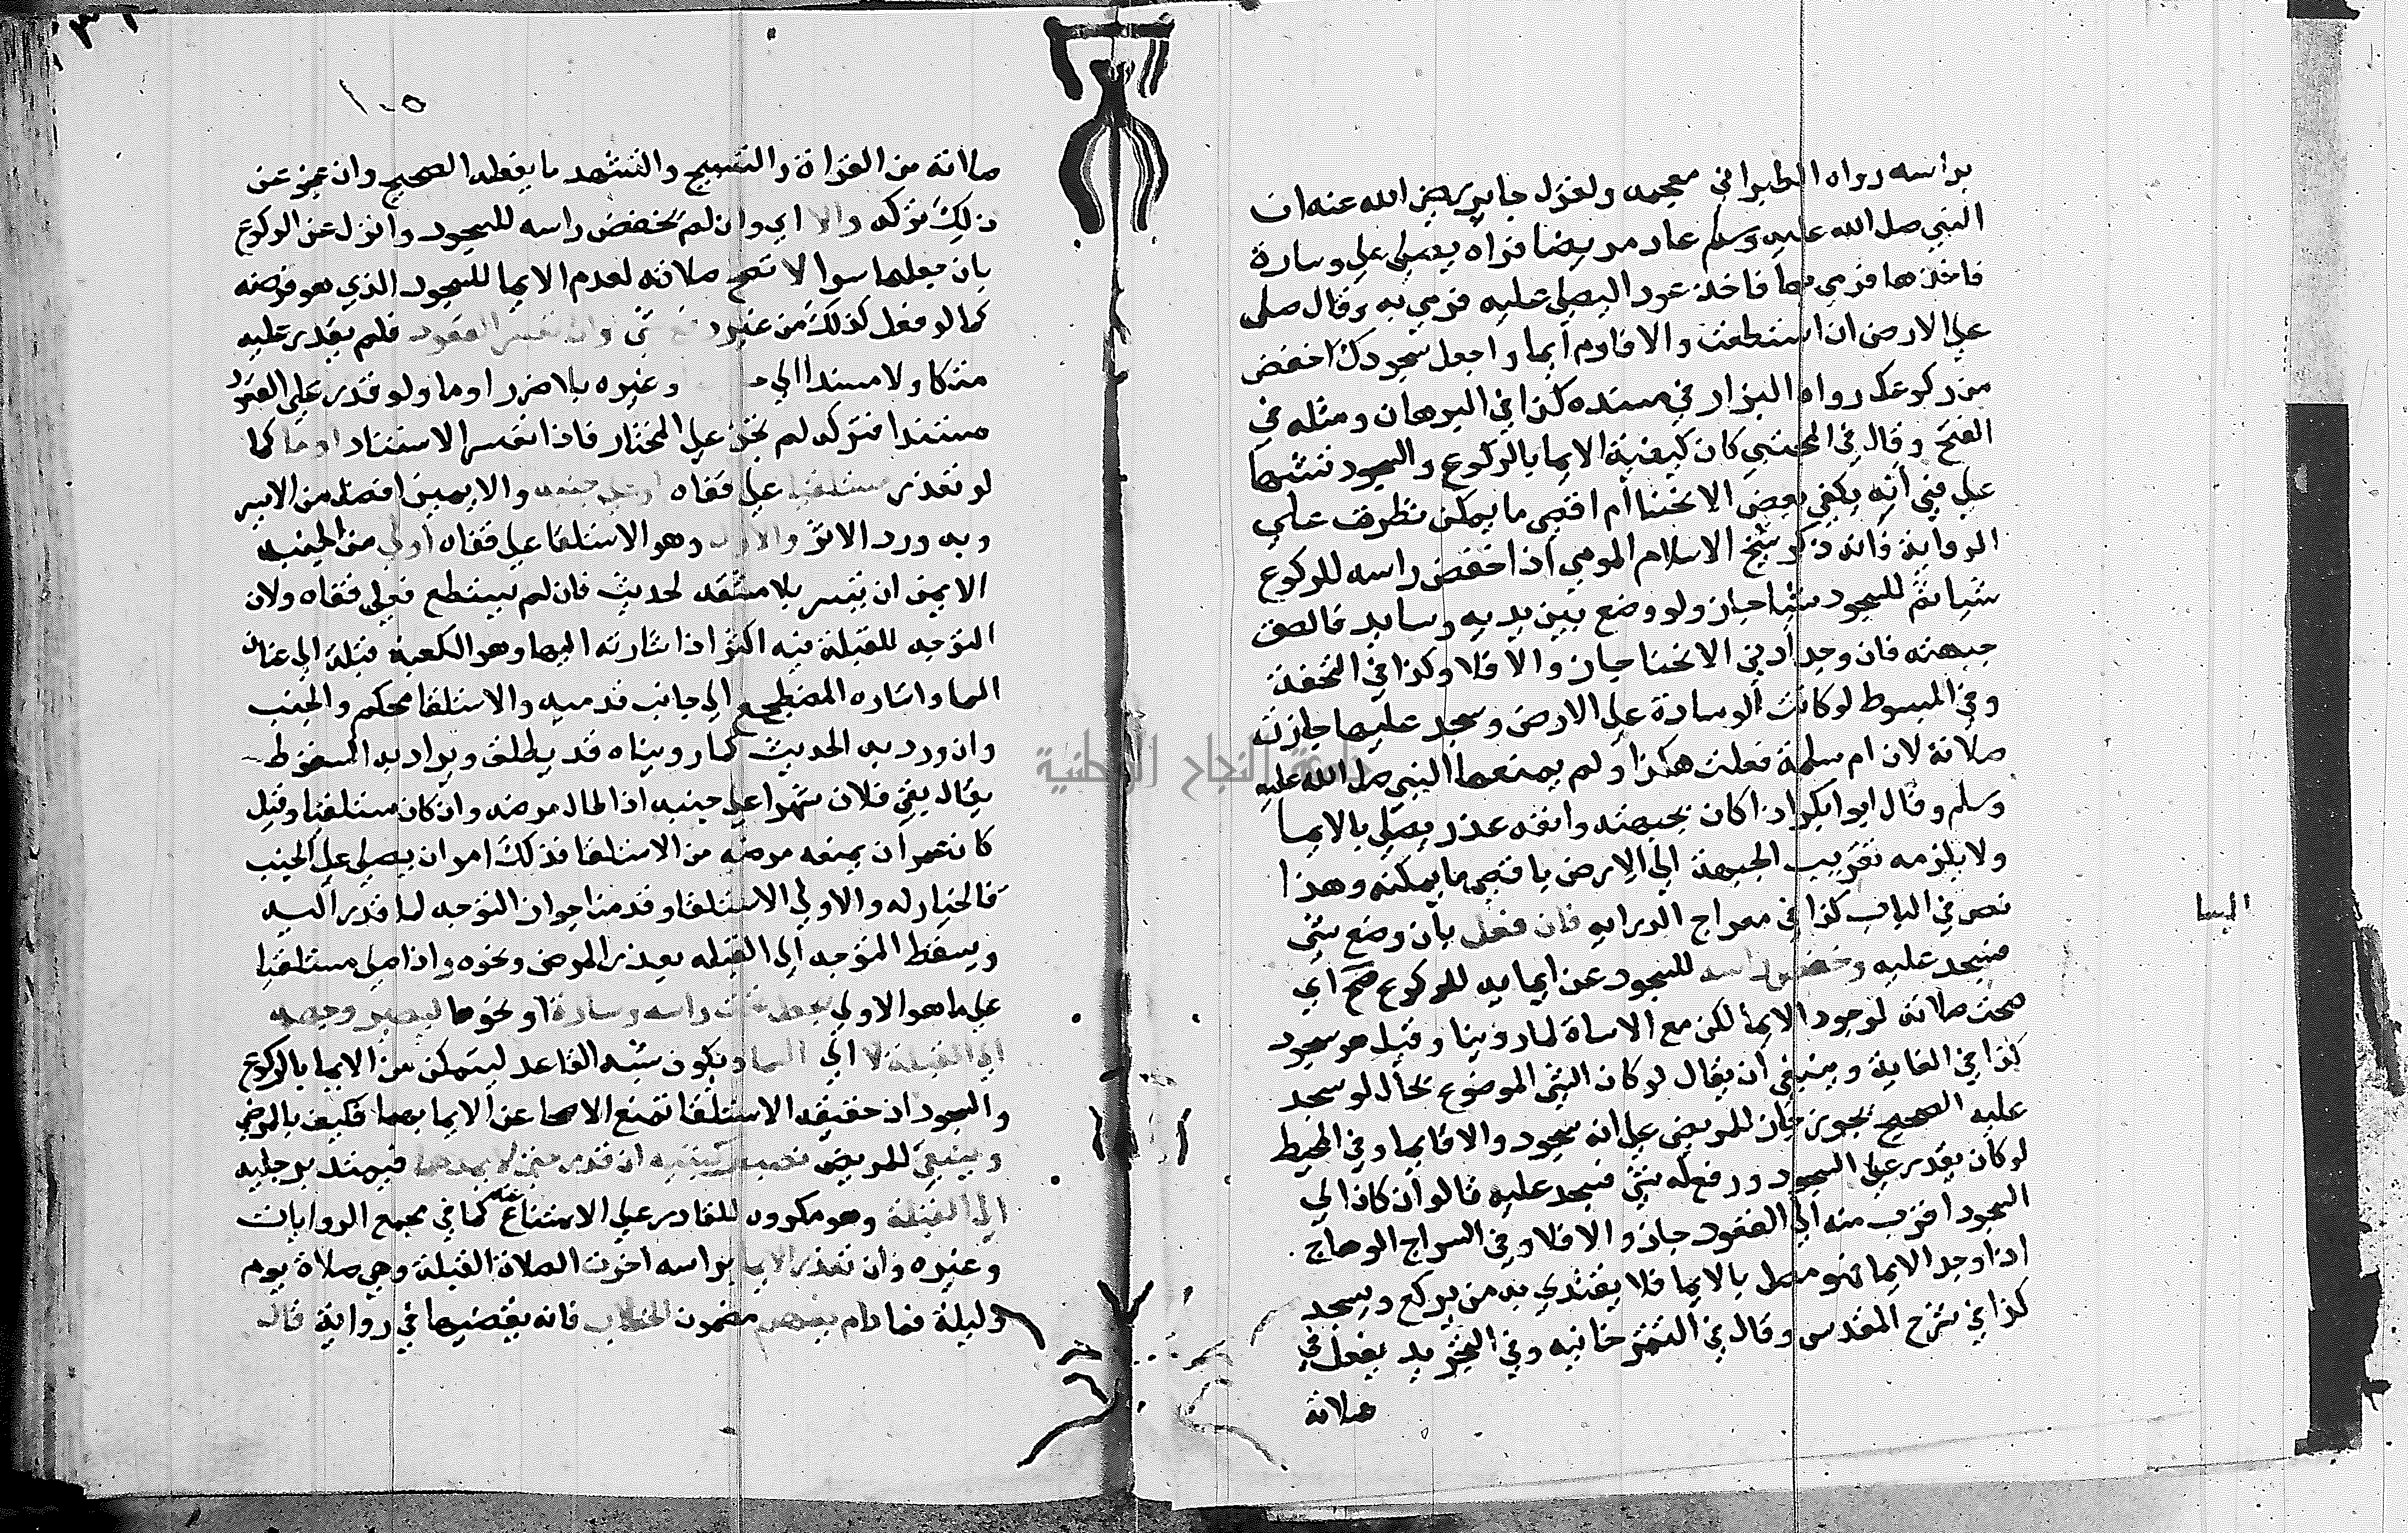 براسه رواه الطبراني في معجمه ولقول جابر رضي الله عنه ان
النبي صلى الله عليه وسلم عاد مريضا فراه يصلي على وسادة
فاخذها فرمى بها فاخذ عود اليصلي عليه فرمي به وقال صلى
على الارض ان استطعت والا فاوم ايما واجعل سجودك اخفض
من ركوعك رواه البزار في مسنده كذا في البرهان ومثله في
الفتح وقال في المجتبى كان كيفية الايما بالركوع والسجود تشتبها
على في انه يكفي بعض الانحنا ام اقصى ما يمكن نظرت على
الرواية فانه ذكر شيخ الاسلام المومي اذا خفض راسه للركوع
شيا ثم للسجود شيا جاز ولو وضع بين يديه وسايد فالصق
جبهته فان وجد ادنى الانحنا جاز والا فلا وكذا في التحفة
وفي المبسوط لو كانت الوسادة على الارض وسجد عليها جازت
صلاته لان ام سلمة فعلت هكذا ولم يمنعها النبي صلى الله عليه
وسلم وقال ابوابكر اذا كان بجبهته وانفه عذر يصلي بالايما
ولا يلزمه تقريب الجبهة الى الارض باقصى ما يمكنه وهذا
نص في الباب كذا في معراج الدراية فان فعل بان وضع شي
فسجد عليه وخفض راسه للسجود عن ايمايه للركوع صح اي
صحت صلاته لوجود الايما لكن مع الاساة لما روينا وقيل هو سجود
كذا في الغاية وينبغي ان يقال لو كان الشي الموضوع بحال لو سجد
عليه الصحيح يجوز جاز للمريض على انه سجود والا فايما وفي المحيط
لو كان يقدر على السجود ورفع له شي فسجد عليه قالوا ان كان الى
السجود اقرب منه الى القعود جاز والا فلا وفي السراج الوهاج
اذا وجد الايما فهو مصل بالايما فلا يقتدي به من يركع ويسجد
كذا في شرح المقدسي وقال في التمرتخانيه وفي التجريد يفعل في
صلاته
السا
١٠٥
صلاته من القراة والتسبيح والتشهد ما يفعله الصحيح وان عجز عن
ذلك تركه والا اي وان لم يخفض راسه للسجود وانزل عن الركوع
بان جعلهما سوا لا تصح صلاته لعدم الايما للسجود الذي هو فرضه
كما لو فعل كذلك من غير رفع شي وان تعسر القعود فلم يقدر عليه
متكا ولا مستندا الى وغيره بلا ضرر اوما ولو قدر على القعود
مستندا فتركه لم يجز على المختار فاذا تعسر الاستناد اوما كما
لو تعذر مستلقيا على قفاه او على جنبه والايمن افضل من الايسر
وبه ورد الاثر والاول وهو الاستلقا على قفاه اولى من الجنب
الايمن ان تيسر بلا مشقة لحديث فان لم يستطع فعلى قفاه ولان
التوجه للقبلة فيه اكثر اذ اشارته اليها وهو الكعبة قبلة الى عنان
السما واشاره المضطجع الى جانب قدميه والاستلقا محكم والجنب
وان ورد به الحديث كما رويناه قد يطلق ويراد به السقوط
يقال بقي فلان شهرا على جنبه اذا طال مرضه وان كان مستلقيا وقيل
كان عمران يمنعه مرضه من الاستلقا فذلك امر ان يصلي على الجنب
فالخيار له والاولى الاستلقا وقدمنا جواز التوجه لما قدر اليه
ويسقط التوجه الى القبلة بعذر المرض ونحوه واذا صلى مستلقيا
على ما هو الاولى يجعل تحت راسه وسادة او نحوها ليصير وجهه
الى القبلة لا الى السما وتكون شبه القاعد ليتمكن من الايما بالركوع
والسجود اذ حقيقة الاستلقا تمنع الاصحا عن الايما بهما فكيف بالمرضى
وينبغي للمريض نصب ركبتيه ان قدر حتى لا يمدهما فيمتد برجليه
الى القبلة وهو مكروه للقادر على الامتناع عنه كما في مجمع الروايات
وغيره وان تعذر الايما براسه اخرت الصلاة القليلة وهي صلاة يوم
وليلة فما دام يفهم مضمون الخطاب فانه يقضيها في رواية قال
جامعة النجاح الوطنية